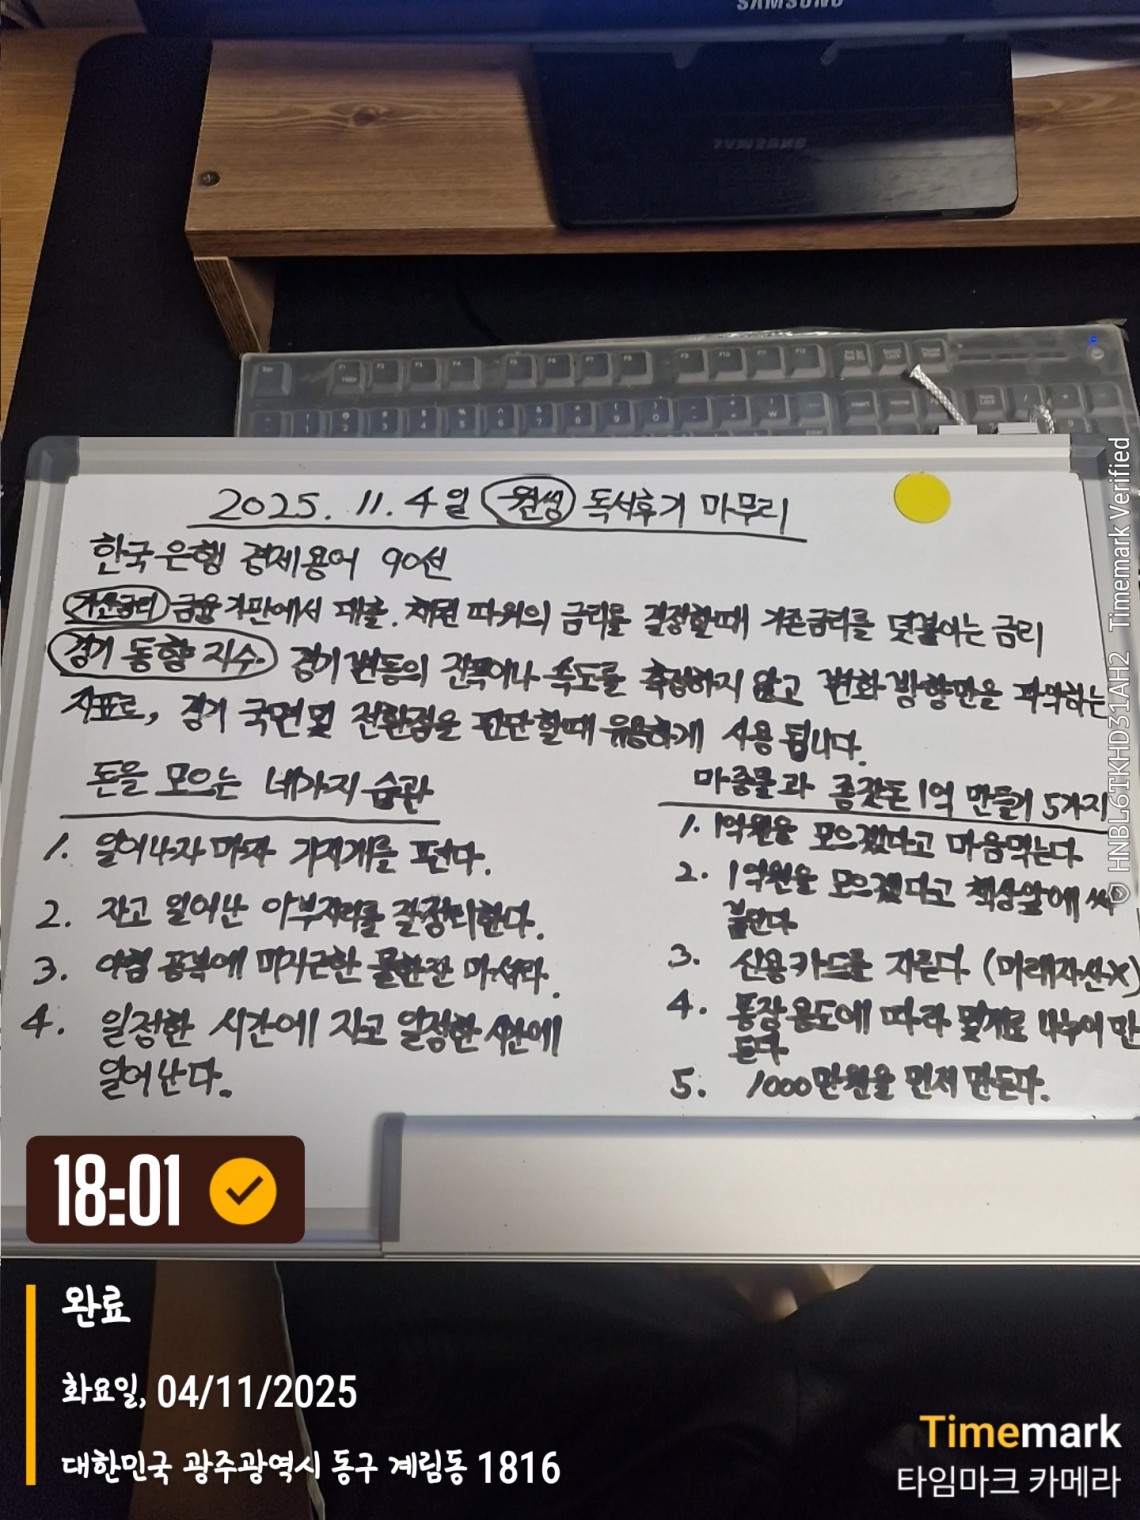 SAMSUNG
SAMSUNG
2025. 11. 4일 원씽 독서후기 마무리
한국은행 경제용어 90선
가산금리 금융기관에서 대출. 채권 따위의 금리를 결정할때 기존금리를 덧붙이는 금리
경기 동향 지수. 경기 변동의 진폭이나 속도를 측정하지 않고 변화 방향만을 파악하는
지표로, 경기 국면 및 전환점을 판단할때 유용하게 사용 됩니다.
돈을 모으는 네가지 습관
1. 일어나자 마자 기지개를 편다.
2. 자고 일어난 이부자리를 잘정리한다.
3. 아침 공복에 미지근한 물한잔 마셔라.
4. 일정한 시간에 자고 일정한 시간에
일어난다.
마중물과 종잣돈 1억 만들기 5가지
1. 1억원을 모으겠다고 마음먹는다
2. 1억원을 모으겠다고 책상앞에 써
붙인다
3. 신용카드를 자른다 (미래자산X)
4. 통장용도에 따라 몇개로 나누어 만
든다
5. 1000만원을 먼저 만든다.
© HNBL6TKHD31AH2 Timemark Verified
18:01
완료
화요일, 04/11/2025
대한민국 광주광역시 동구 계림동 1816
Timemark
타임마크 카메라